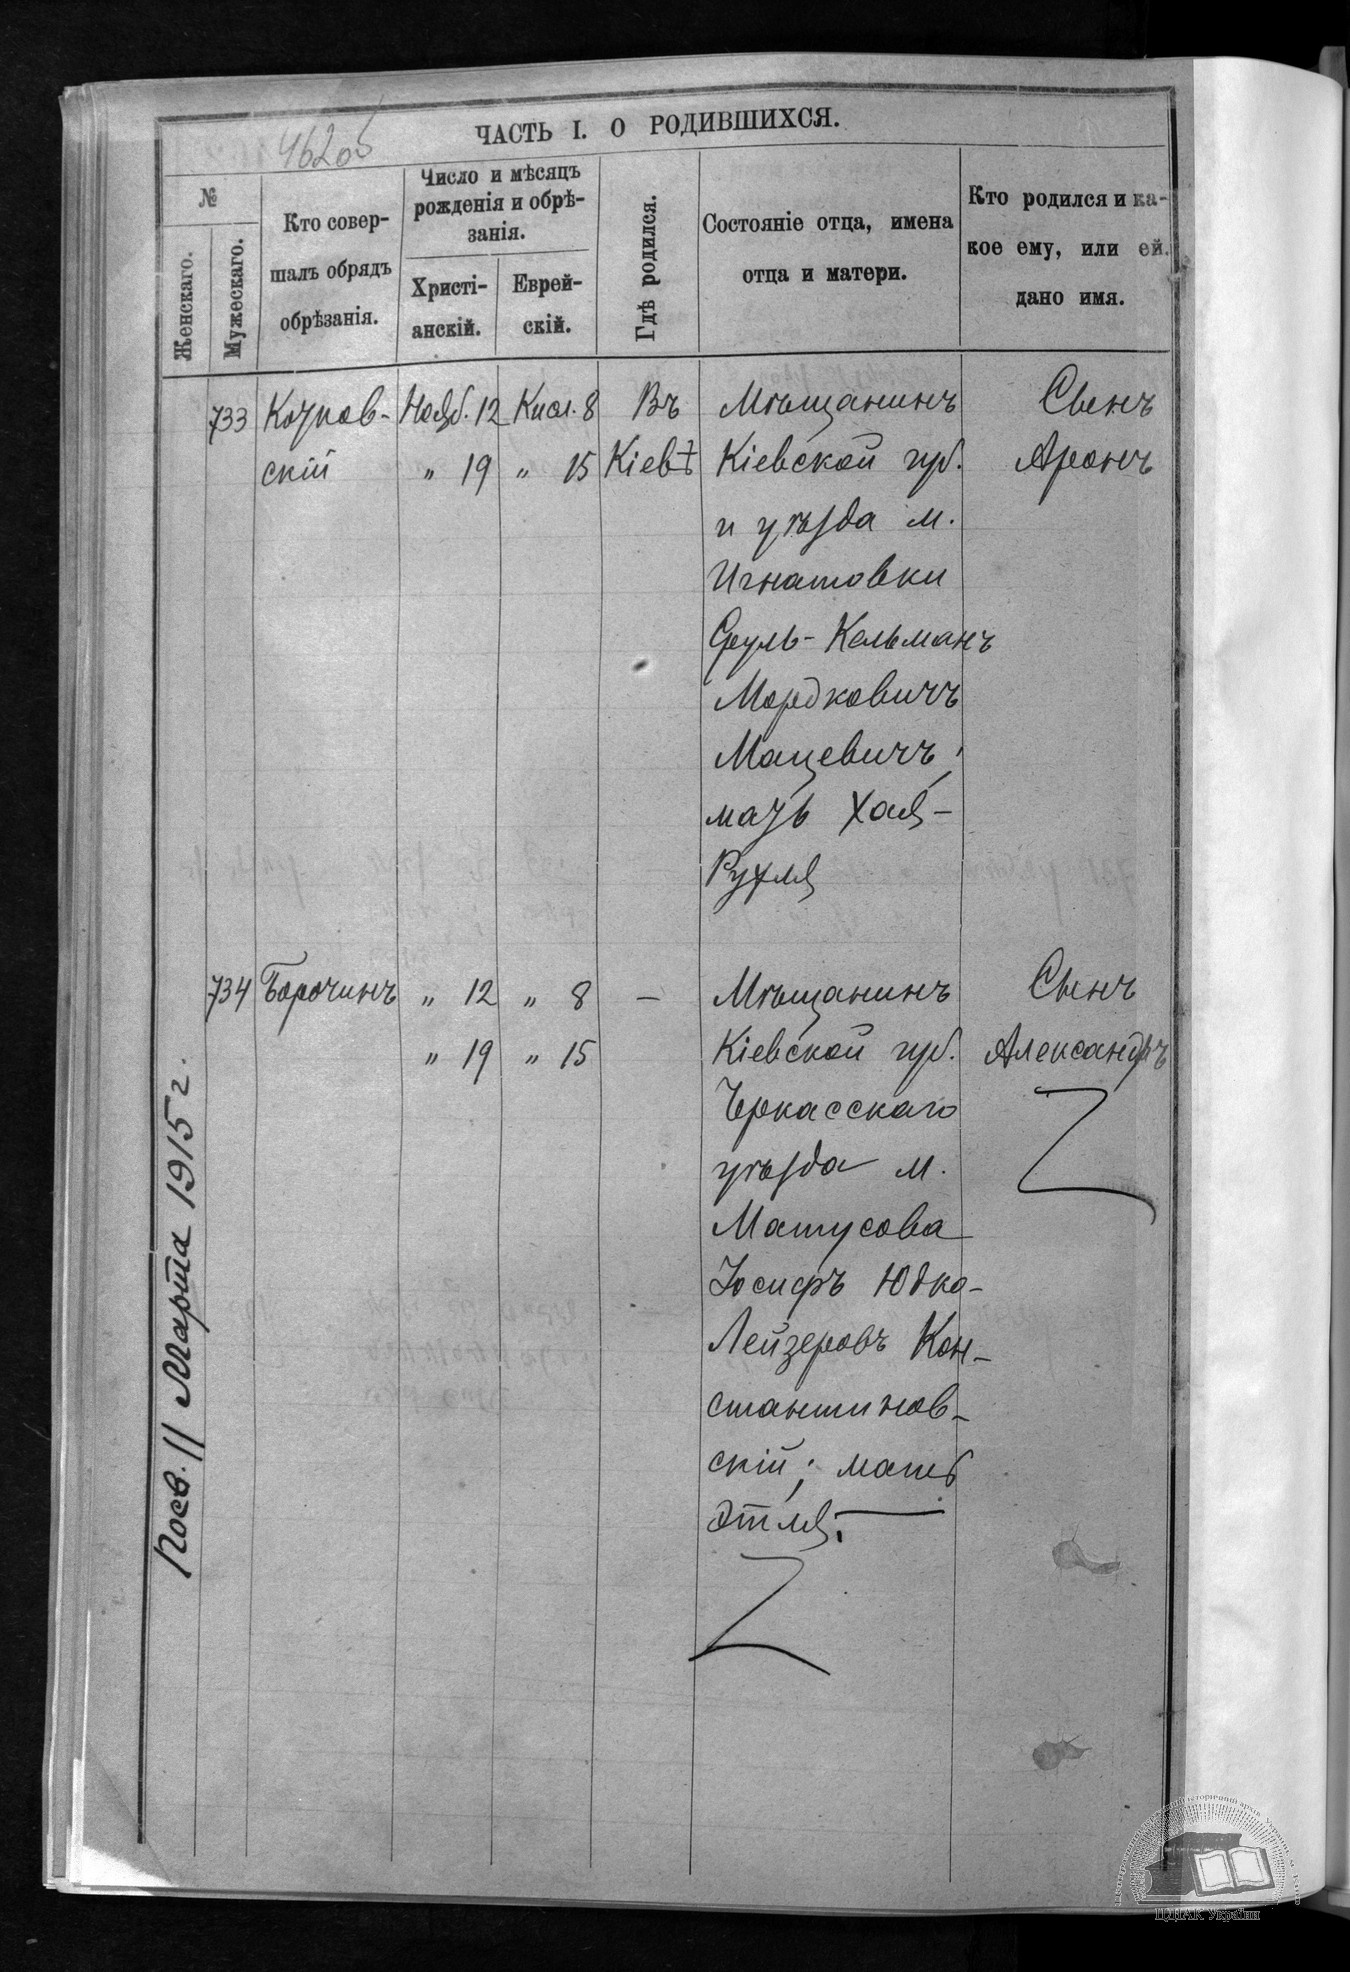 462об
ЧАСТЬ I. О РОДИВШИХСЯ.
№
Женскаго.
Мужескаго.
Кто совер-
шалъ обрядъ
обрѣзанія.
Число и мѣсяцъ
рожденія и обрѣ-
занія.
Христі-
анскій.
Еврей-
скій.
Гдѣ родился.
Состояніе отца, имена
отца и матери.
Кто родился и ка-
кое ему, или ей.
дано имя.
733 Нояб. 12 Кисл. 8 Въ Мѣщанинъ Сынъ
скій " 19 " 15 Кіевѣ Кіевской губ. Аронъ
и уѣзда м.
Игнатовки
Сруль-Кельманъ
Мордковичъ
Мацевичъ;
мать Хая-
Рухля
734 Борочинъ " 12 " 8 — Мѣщанинъ Сынъ
" 19 " 15 Кіевской губ. Александръ
Черкасскаго
уѣзда м.
Матусова
Іосифъ Юдко-
Лейзеровъ Кон-
стантинов-
скій; мать
Этля.
Посв. 11 Марта 1915 г.
ЦДІАК України